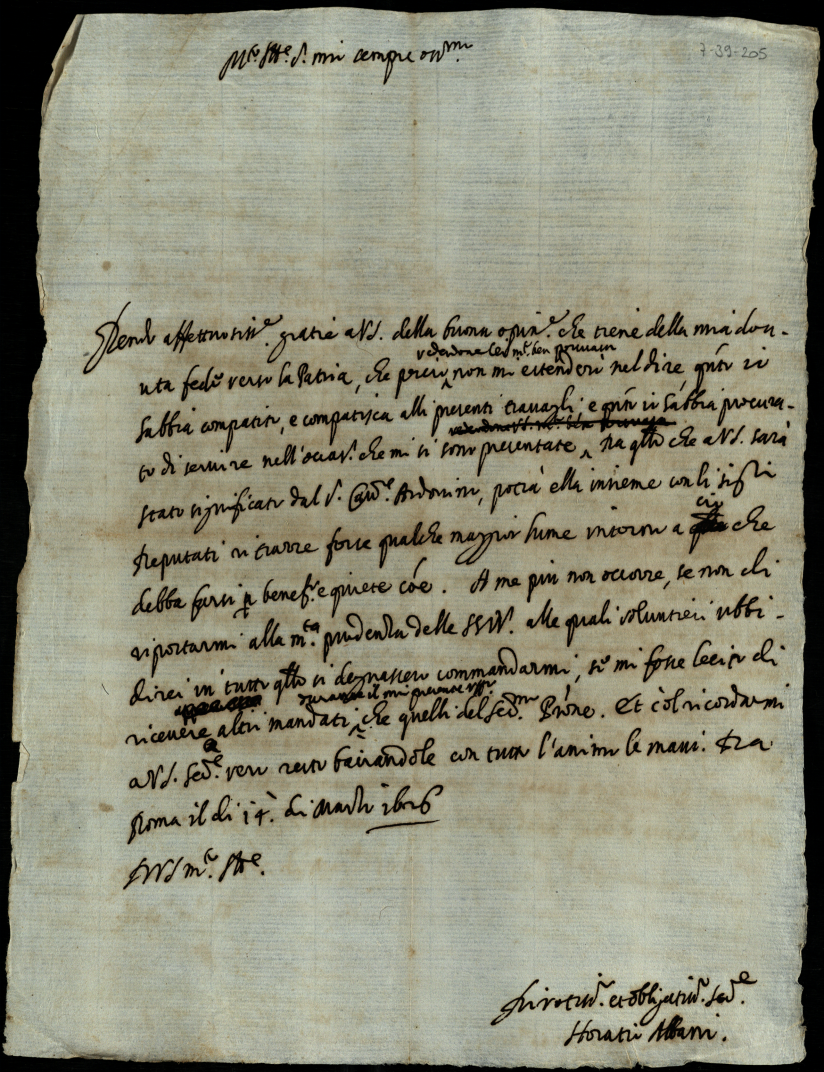 7-39-205
M.to Ill.re S.r mio sempre oss.mo
Rendo affettuosiss.e gratie a V.S. della buona opin.e che tiene della mia dou-
uta fede verso la Patria, che perciò non mi estenderò nel dire q.nto io
vedendone
habbia compatito, e compatisca alli presenti trauagli, e q.nto io habbia procura-
to di seruire nell'occas.i che mi si sono presentate, ma q.llo che a V.S. sarà
stato significato dal S.r Cau.re Ardoini, potrà ella insieme con li sig.ri
Deputati ritrarre forse qualche maggior lume intorno a che
ciò
debba farsi p benef.o e quiete cõe. A me più non occorre, se non di
riportarmi alla m.ta prudenza delle SS.VV. alle quali volontieri ubbi-
direi in tutto q.llo si degnassero commandarmi, se mi fosse lecito di
durante il mio presente uff.o
riceuere altri mandati, che quelli del Ser.mo Prõne. Et col ricordarmi
a V.S. Ser.e vero resto baciandole con tutto l'animo le mani. Da
Roma il dì 14. di Marzo 1606
Di V.S. m.to Ill.re
Diuotiss.o et obligatiss.o Ser.e
Horatio Albani.